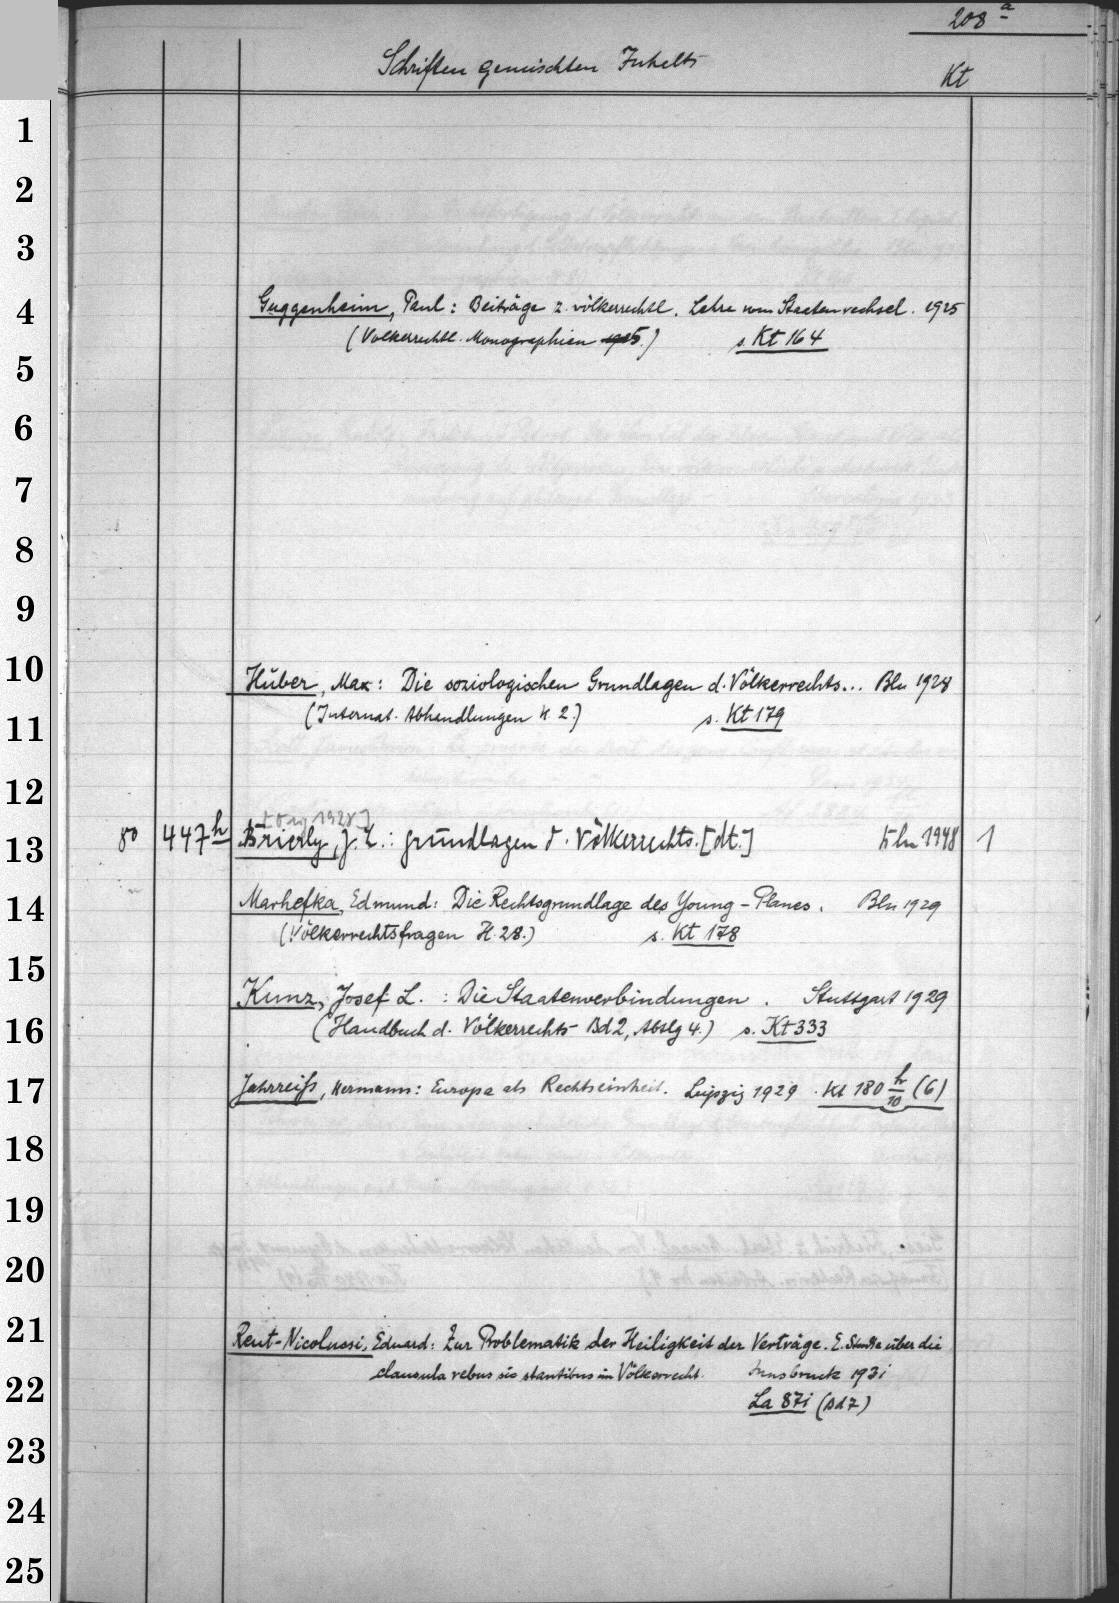 208 a
Schriften gemischten Inhalts
Kt
1
2
3
4 Guggenheim, Paul: Beiträge z. völkerrechtl. Lehre vom Staatenwechsel. 1925
(Völkerrechtl. Monographien 1925.) s. Kt 164
5
6
7
8
9
10 Huber, Max: Die soziologischen Grundlagen d. Völkerrechts... Bln 1928
11 (Internat. Abhandlungen H 2.) s. Kt 179
12
[Orig 1928]
13 8° 447 h Brierly, J. L.: Grundlagen d. Völkerrechts. [dt.] Bln 1948 1
14 Marhefka, Edmund: Die Rechtsgrundlage des Young-Planes. Bln 1929
(Völkerrechtsfragen H. 28.) s. Kt 178
15 Kunz, Josef L.: Die Staatenverbindungen. Stuttgart 1929
16 (Handbuch d. Völkerrechts Bd 2, Abtlg 4.) s. Kt 333
17 Jahrreiß, Hermann: Europa als Rechtseinheit. Leipzig 1929 Kt 180 h/10 (6)
18
19
20
21 Reut-Nicolussi, Eduard: Zur Problematik der Heiligkeit der Verträge. E. Studie über die
22 clausula rebus sic stantibus im Völkerrecht. Innsbruck 1931
La 87i (Bd 7)
23
24
25